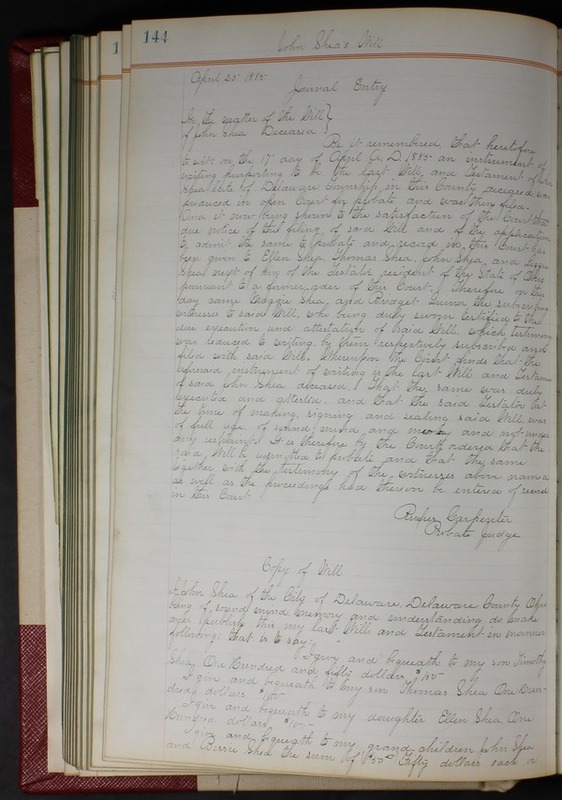 144
John Shea's Will
April 20 1885
Journal Entry
In the matter of the Will
of John Shea Deceased
Be it remembered, that heretofore
to wit: on the 17 day of April A. D. 1885 an instrument of
writing purporting to be the last Will and Testament of John
Shea late of Delaware Township in this County deceased was
produced in open Court for probate and was then filed.
And it now being shown to the satisfaction of the Court that
due notice of the filing of said Will and of the application
to admit the same to probate and record in this Court has
been given to Ellen Shea Thomas Shea, John Shea, and
Shea next of kin of the Testator resident of the State of Ohio
pursuant to a former order of this Court, Therefore on this
day came Maggie Shea, and Bridget the subscribing
witnesses to said Will, who being duly sworn testified to the
due execution and attestation of said Will, which testimony
was reduced to writing, by them respectively subscribed and
filed with said Will. Whereupon the Court finds that the
aforesaid instrument of writing is the last Will and Testament
of said John Shea deceased, that the same was duly
executed and attested and that the said Testator at
the time of making, signing and sealing said Will, was
of full age, of sound mind and memory and not under
any restraint It is therefore by the Court ordered that the
said Will be admitted to probate and that the same
together with the testimony of the witnesses above named
as well as the proceedings had thereon be entered of record
in this Court
Rufus Carpenter
Probate Judge
Copy of Will
I John Shea of the City of Delaware, Delaware County Ohio
being of sound mind memory and understanding do make
and publish this my last Will and Testament in manner
following: that is to say:
I give and bequeath to my son Timothy
Shea One Hundred and fifty dollars $150
I give and bequeath to my son Thomas Shea One Hun-
dred dollars $100
I give and bequeath to my daughter Ellen Shea One
Hundred dollars $100
I give and bequeath to my grand children John Shea
and Shea the sum of $50 Fifty dollars each